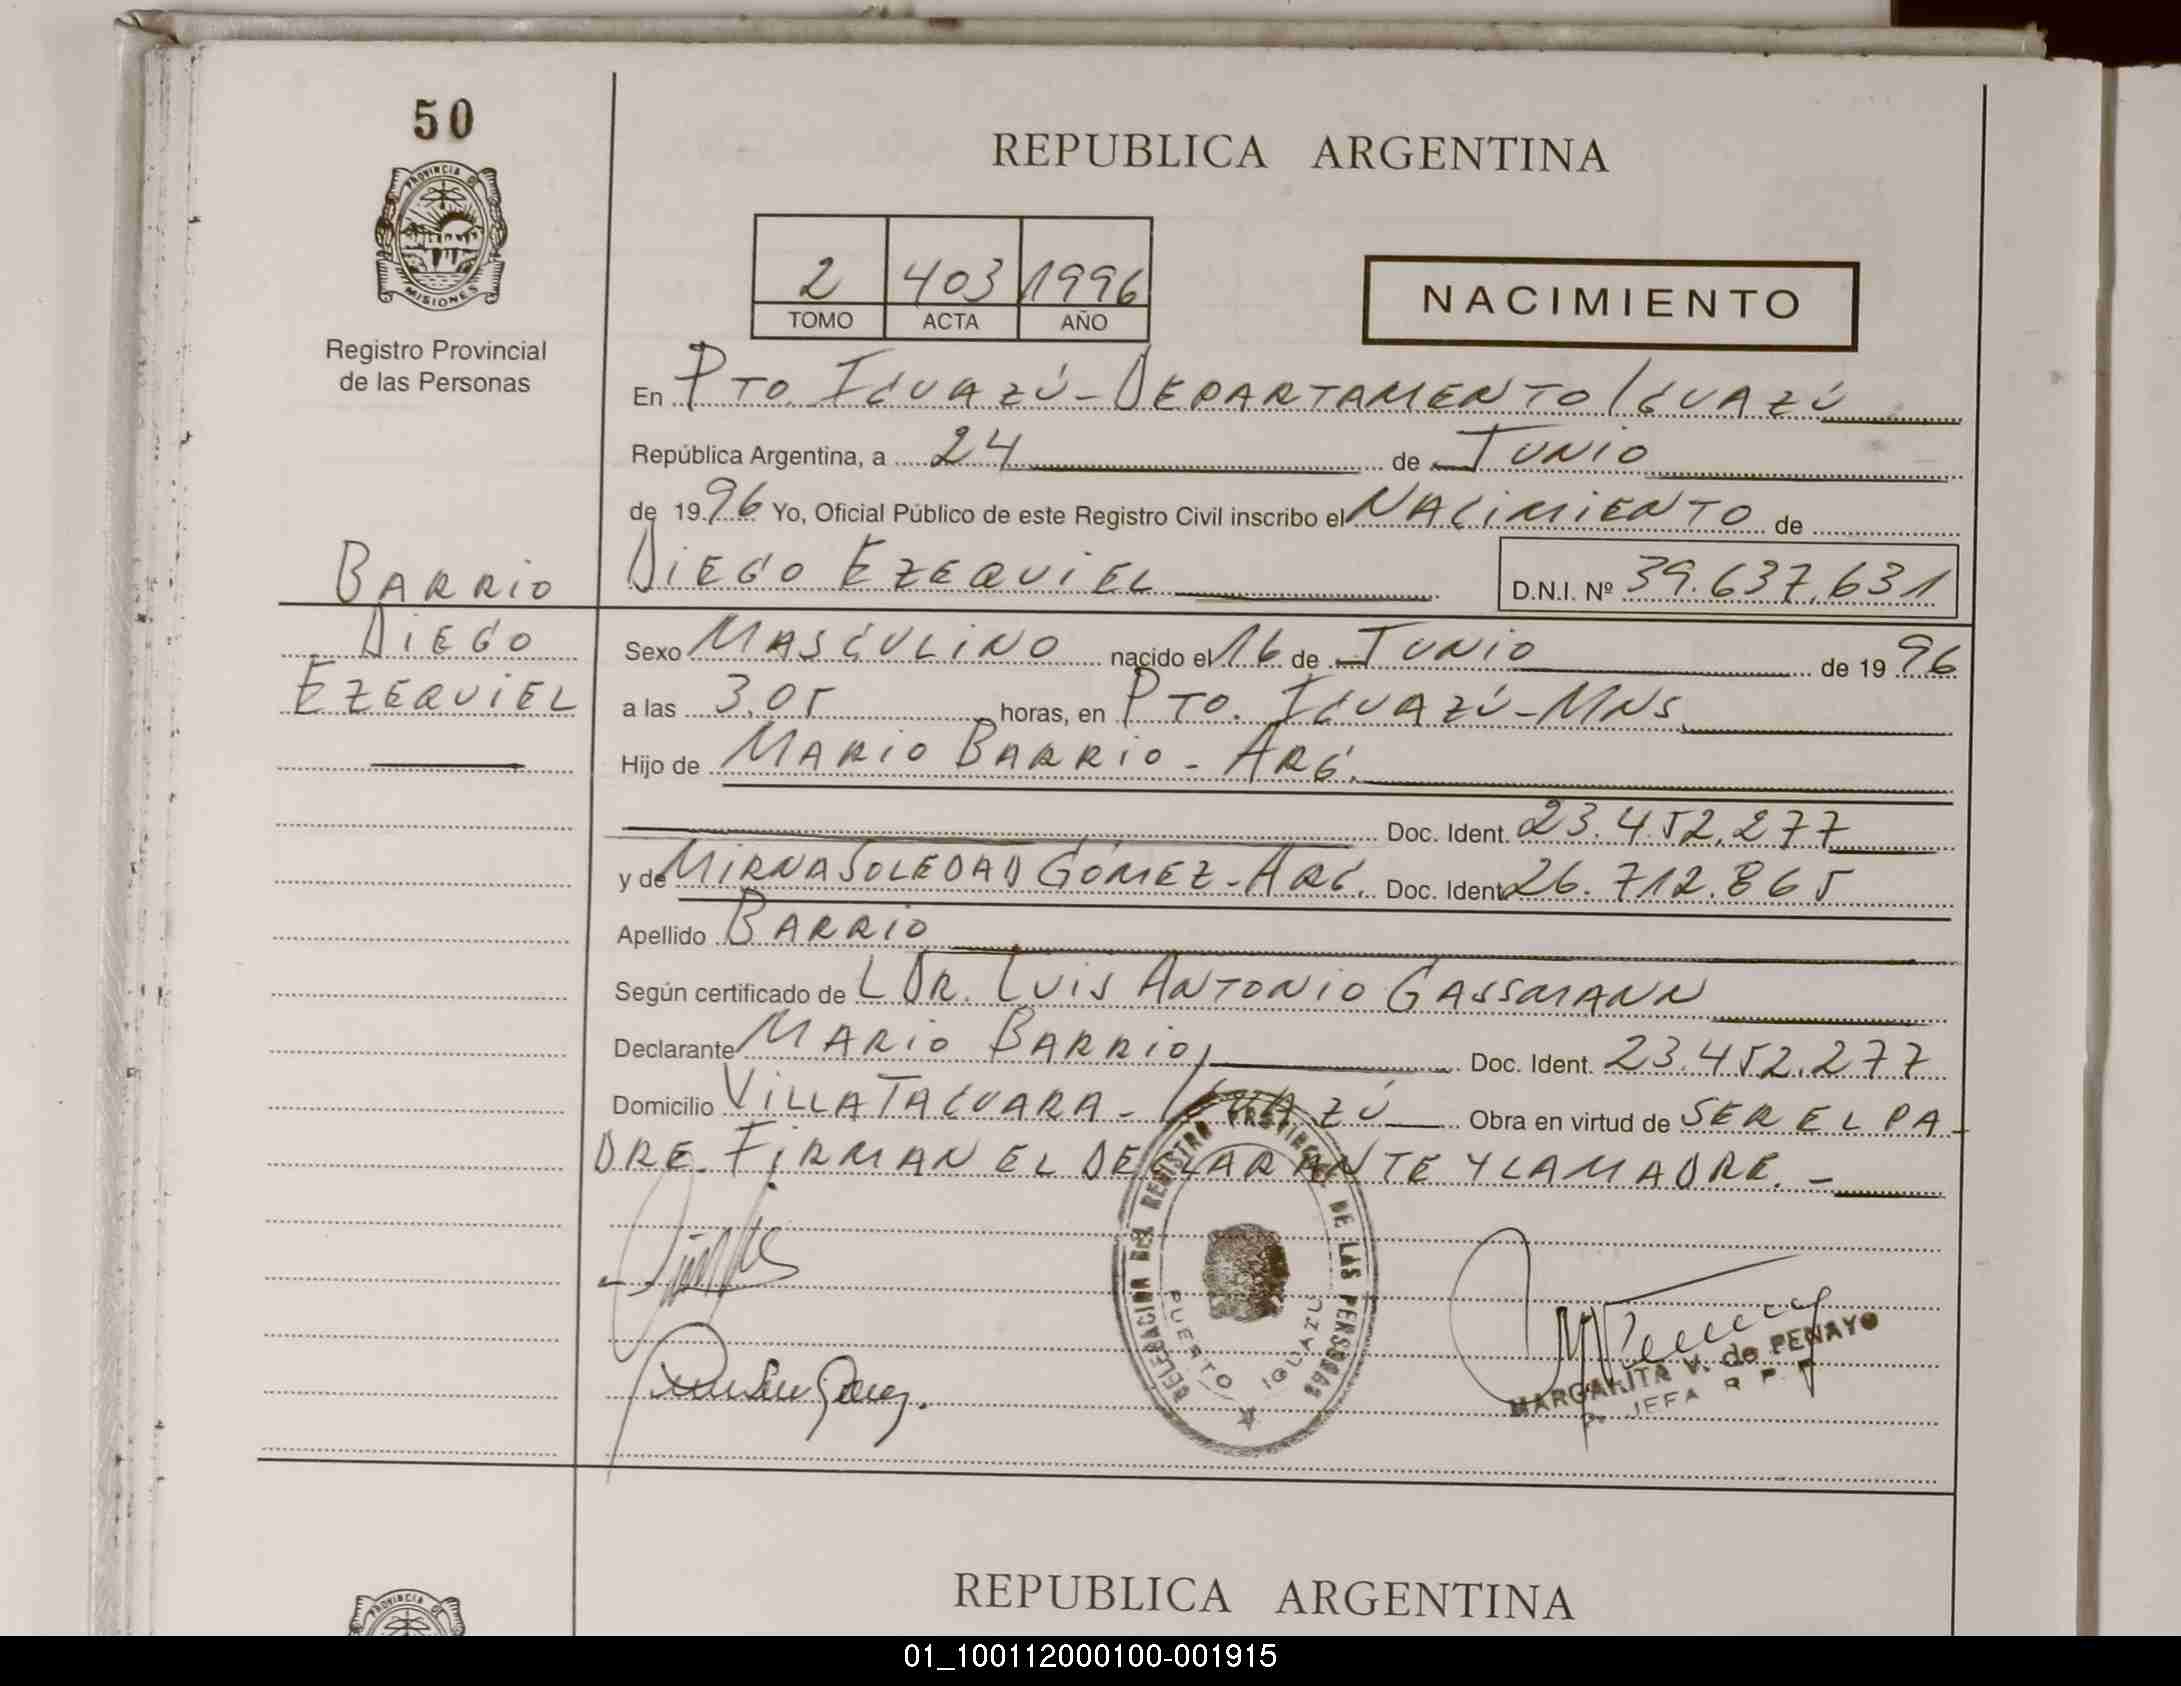 50
PROVINCIA DE
MISIONES
Registro Provincial
de las Personas
REPUBLICA ARGENTINA
2 403 1996
TOMO ACTA AÑO
NACIMIENTO
En PTO. IGUAZÚ - DEPARTAMENTO IGUAZÚ
República Argentina, a 24 de JUNIO
de 1996 Yo, Oficial Público de este Registro Civil inscribo el NACIMIENTO de
DIEGO EZEQUIEL D.N.I. Nº 39.637.631
BARRIO
DIEGO
EZEQUIEL
Sexo MASCULINO nacido el 16 de JUNIO de 1996
a las 3.05 horas, en PTO. IGUAZÚ - MNS.
Hijo de MARIO BARRIO - ARG.
Doc. Ident. 23.452.277
y de MIRNA SOLEDAD GÓMEZ - ARG. Doc. Ident. 26.712.865
Apellido BARRIO
Según certificado de L DR. LUIS ANTONIO GASSMANN
Declarante MARIO BARRIO Doc. Ident. 23.452.277
Domicilio VILLA TACUARA - IGUAZÚ Obra en virtud de SER EL PA-
DRE. FIRMAN EL DECLARANTE Y LA MADRE. -
DELEGACION DEL REGISTRO PROVINCIAL DE LAS PERSONAS
PUERTO IGUAZU
MARGARITA V. de PENAYO
JEFA R. P. P.
REPUBLICA ARGENTINA
PROVINCIA DE
01_100112000100-001915